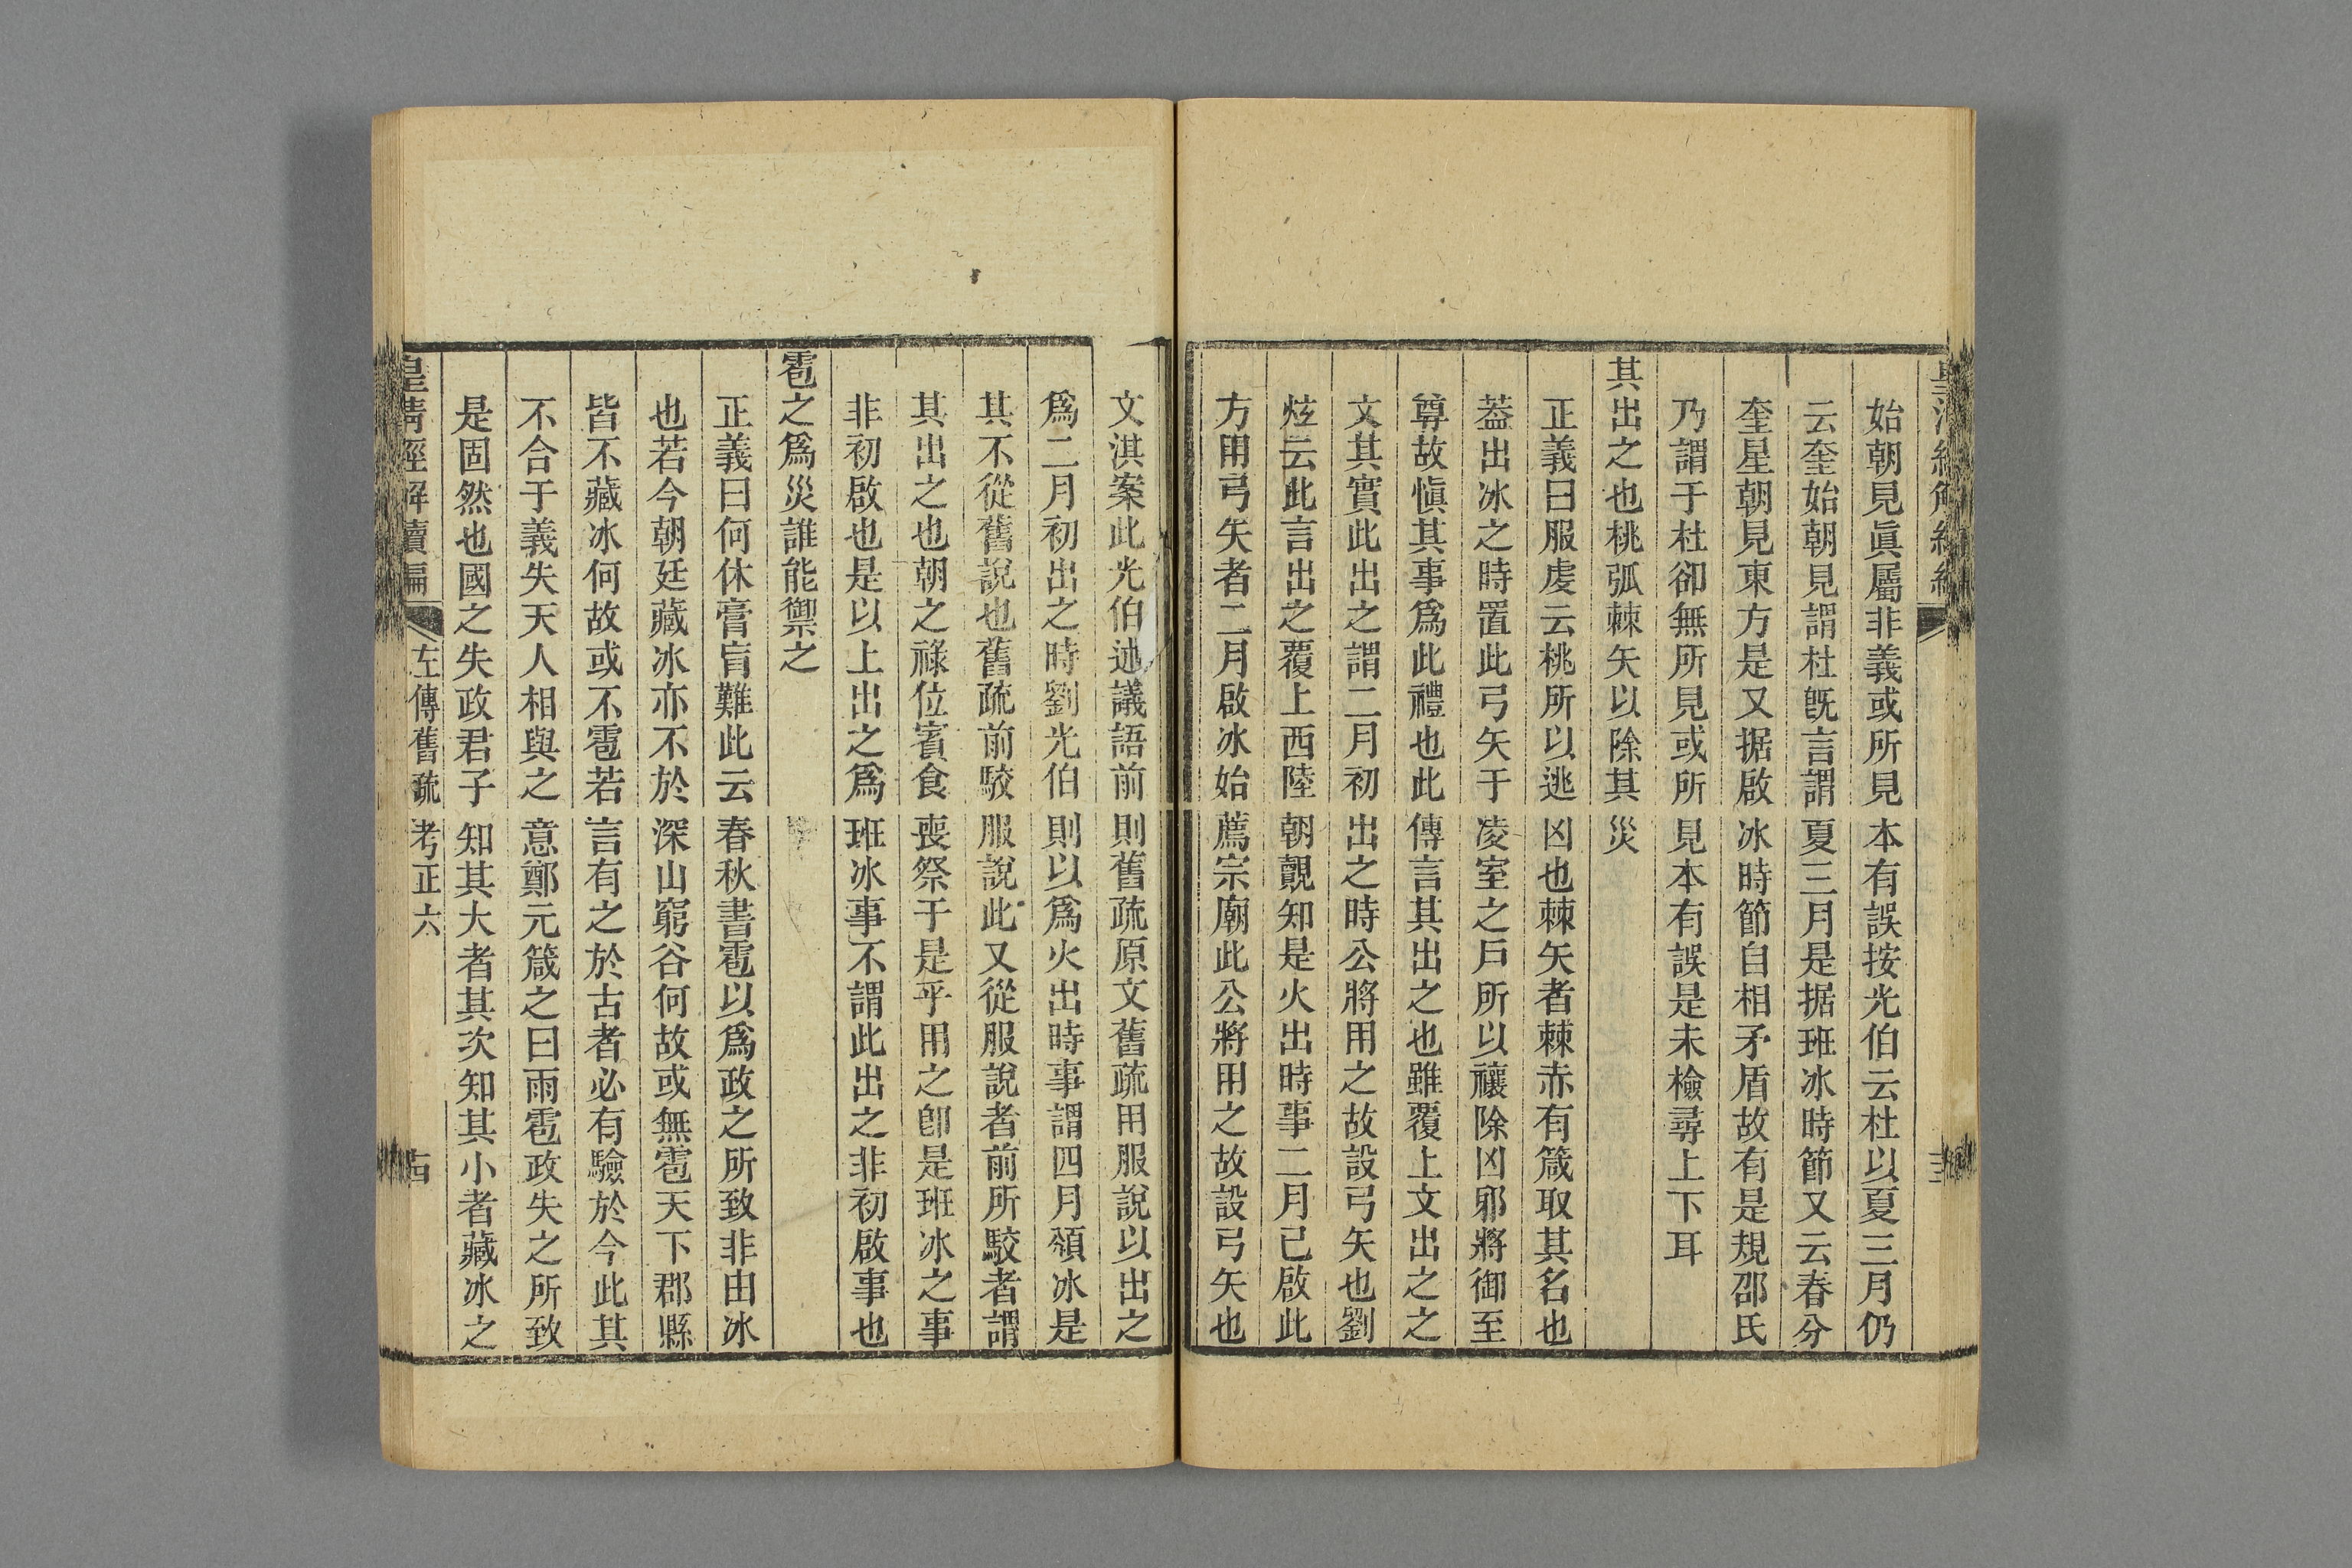 始朝見眞屬非義或所見本有誤按光伯云杜以夏三月仍
云奎始朝見謂杜旣言謂夏三月是据班冰時節又云春分
奎星朝見東方是又据啟冰時節自相矛盾故有是規邵氏
乃謂于杜卻無所見或所見本有誤是未檢尋上下耳
其出之也桃弧棘矢以除其災
正義曰服虔云桃所以逃凶也棘矢者棘赤有箴取其名也
葢出冰之時置此弓矢于凌室之戶所以禳除凶邪將御至
尊故愼其事爲此禮也此傳言其出之也雖覆上文出之之
文其實此出之謂二月初出之時公將用之故設弓矢也劉
炫云此言出之覆上西陸朝覿知是火出時事二月已啟此
方用弓矢者二月啟冰始薦宗廟此公將用之故設弓矢也
文淇案此光伯述議語前則舊疏原文舊疏用服說以出之
爲二月初出之時劉光伯則以爲火出時事謂四月頒冰是
其不從舊說也舊疏前駮服說此又從服說者前所駮者謂
其出之也朝之祿位賓食喪祭于是乎用之卽是班冰之事
非初啟也是以上出之爲班冰事不謂此出之非初啟事也
雹之爲災誰能禦之
正義曰何休膏肓難此云春秋書雹以爲政之所致非由冰
也若今朝廷藏冰亦不於深山窮谷何故或無雹天下郡縣
皆不藏冰何故或不雹若言有之於古者必有驗於今此其
不合于義失天人相與之意鄭元箴之曰雨雹政失之所致
是固然也國之失政君子知其大者其次知其小者藏冰之
皇淸經解續編 左傳舊疏考正六